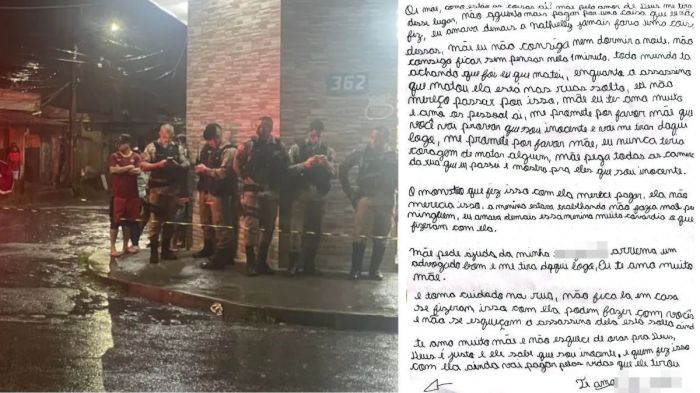 362
Oi mãe, como estão as coisas ai? mãe pelo amor de Deus me tira
desse lugar, não aguento mais pagar por uma coisa que eu não
fiz, eu amava demais a Nathielly jamais faria uma coisa
dessas, mãe eu não consigo nem dormir a noite, não
consigo ficar sem pensar nela 1 minuto, todo mundo ta
achando que foi eu que matei, enquanto a assassino
que matou ela esta nas ruas solto, eu não
mereço passar por isso, mãe eu te amo muito
e amo os pessoal ai, me promete por favor mãe que
você vai provar que sou inocente e vai me tirar daqui
logo, me promete por favor mãe, eu nunca teria
coragem de matar alguem, mãe pega todas as cameras
da rua que eu passei e mostra pra eles que sou inocente.
O monstro que fez isso com ela merece pagar, ela não
merecia isso, a menina estava trabalhando não fazia mal pra
ninguem, eu amava demais essa menina muito covardia o que
fizeram com ela.
Mãe pede ajuda da minha arruma um
advogado bom e me tira daqui logo, Eu te amo muito
mãe.
e toma cuidado na rua, não fica la em casa
se fizeram isso com ela podem fazer com vocês
e não se esqueçam o assassino dela esta solto ainda
te amo muito mãe e não esquece de orar pra Deus,
Deus é justo e ele sabe que sou inocente, e quem fez isso
com ela ainda vai pagar pelas vidas que ele tirou
Te amo